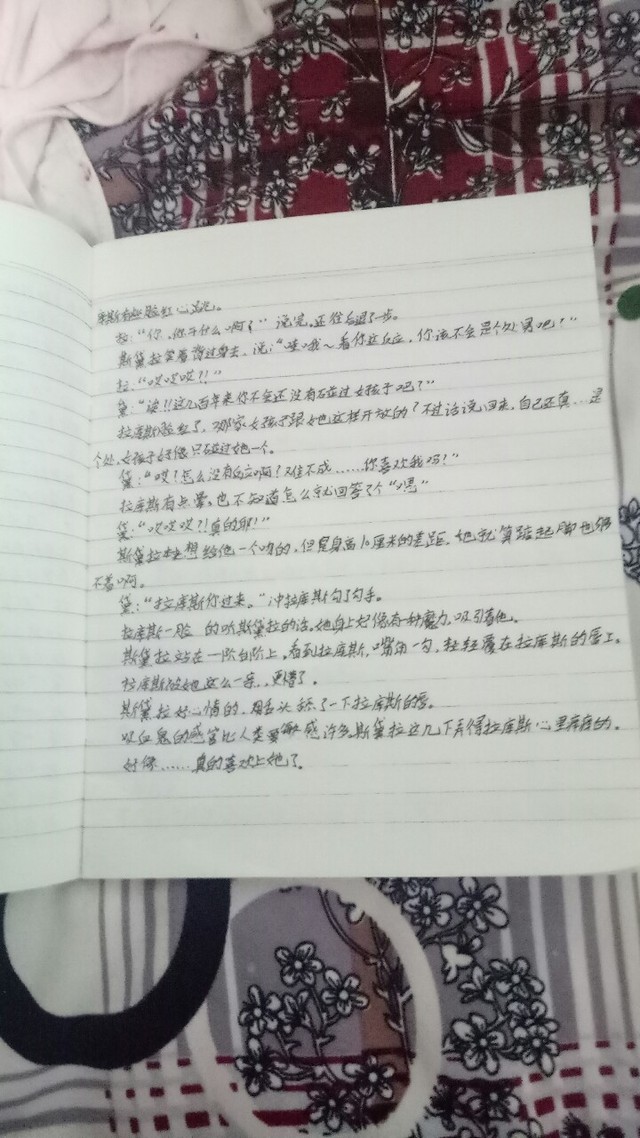 库斯有些脸红心跳。
拉：“你，你干什么啊？”说完，还往后退了一步。
斯黛拉笑着背过身去，说：“哇哦～看你这反应，你该不会是个处男吧？”
拉：“哎哎哎？！”
黛：“诶！！这几百年来你不会还没有碰过女孩子吧？”
拉库斯脸红了，哪家女孩子跟她这样开放的？不过话说回来，自己还真…是
个处，女孩子好像只碰过她一个。
黛：“哎？怎么没有反应啊？难不成……你喜欢我吗？”
拉库斯有点晕，也不知道怎么就回答了个“嗯”
黛：“哎哎哎？！真的耶！”
斯黛拉本想给他一个吻的，但是身高10厘米的差距，她就算踮起脚也够
不着啊。
黛：“拉库斯你过来。”冲拉库斯勾了勾手。
拉库斯一脸 的听斯黛拉的话。她身上好像有一种魔力，吸引着他。
斯黛拉站在一阶台阶上。看到拉库斯，嘴角一勾，轻轻覆在拉库斯的唇上。
拉库斯被她这么一亲，更懵了。
斯黛拉好心情的，用舌头舔了一下拉库斯的唇。
吸血鬼的感官比人类要敏感许多。斯黛拉这几下弄得拉库斯心里痒痒的。
好像……真的喜欢上她了。